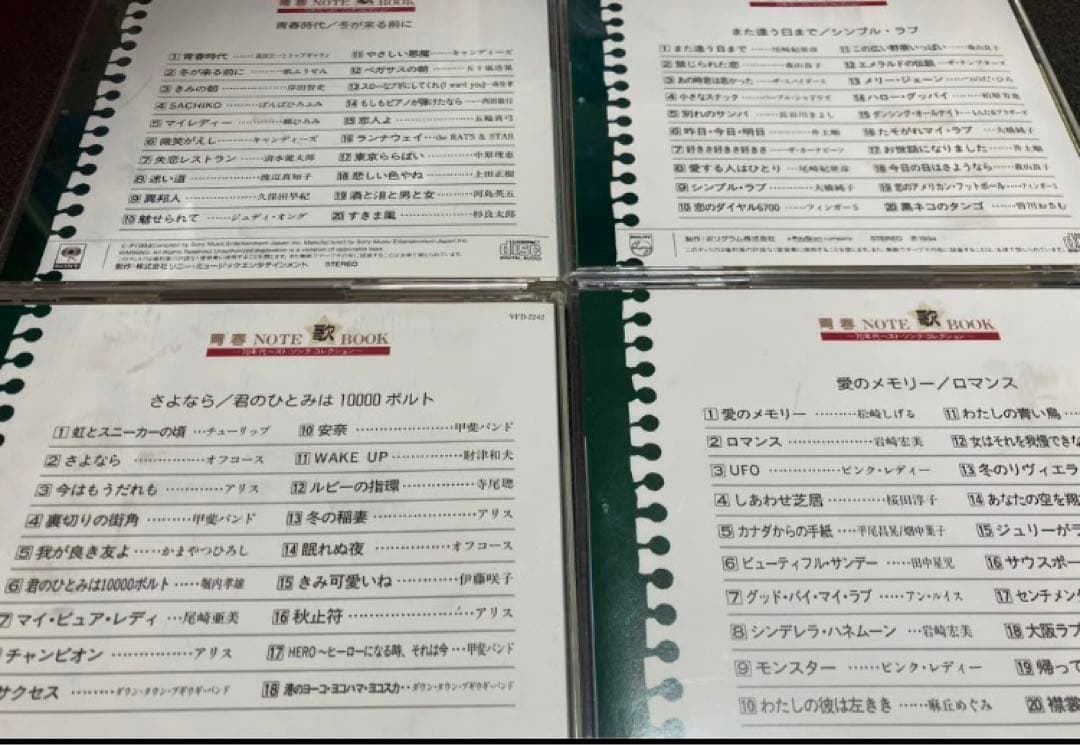 青春 NOTE 歌 BOOK
青春時代/冬が来る前に
1 青春時代
2 冬が来る前に ‥‥紙ふうせん
3 きみの朝 ‥‥岸田智史
4 SACHIKO ‥‥ばんばひろふみ
5 マイレディー ‥‥郷ひろみ
6 微笑がえし ‥‥キャンディーズ
7 失恋レストラン ‥‥清水健太郎
8 迷い道 ‥‥渡辺真知子
9 異邦人 ‥‥久保田早紀
10 魅せられて ‥‥ジュディ・オング
11 やさしい悪魔 ‥‥キャンディーズ
12 ペガサスの朝 ‥‥五十嵐浩晃
13 スローなブギにしてくれ(I want you) ‥‥南佳孝
14 もしもピアノが弾けたなら ‥‥西田敏行
15 恋人よ ‥‥五輪真弓
16 ランナウェイ ‥‥the RATS & STAR
17 東京ららばい ‥‥中原理恵
18 悲しい色やね ‥‥上田正樹
19 酒と泪と男と女 ‥‥河島英五
20 すきま風 ‥‥杉良太郎
SONY
制作・株式会社ソニー・ミュージックエンタテインメント STEREO
COMPACT disc DIGITAL AUDIO
BOOK
また逢う日まで/シンプル・ラブ
1 また逢う日まで ‥‥尾崎紀世彦
2 禁じられた恋 ‥‥森山良子
3 あの時君は若かった ‥‥ザ・スパイダース
4 小さなスナック ‥‥パープル・シャドウズ
5 別れのサンバ ‥‥長谷川きよし
6 昨日・今日・明日 ‥‥井上順
7 好きさ好きさ好きさ ‥‥ザ・カーナビーツ
8 愛する人はひとり ‥‥尾崎紀世彦
9 シンプル・ラブ ‥‥大橋純子
10 恋のダイヤル6700 ‥‥フィンガー5
11 この広い野原いっぱい ‥‥森山良子
12 エメラルドの伝説 ‥‥ザ・テンプターズ
13 メリー・ジェーン ‥‥つのだ・ひろ
14 ハロー・グッバイ ‥‥柏原芳恵
15 ダンシング・オールナイト ‥‥もんた&ブラザーズ
16 たそがれマイ・ラブ ‥‥大橋純子
17 お世話になりました ‥‥井上順
18 今日の日はさようなら ‥‥森山良子
19 恋のアメリカン・フットボール ‥‥フィンガー5
20 黒ネコのタンゴ ‥‥皆川おさむ
PHILIPS
制作/ポリグラム株式会社 a PolyGram company STEREO
VFD-2242
青春 NOTE 歌 BOOK
〜70年代ベスト・ソング・コレクション〜
さよなら/君のひとみは10000ボルト
1 虹とスニーカーの頃 ‥‥チューリップ
2 さよなら ‥‥オフコース
3 今はもうだれも ‥‥アリス
4 裏切りの街角 ‥‥甲斐バンド
5 我が良き友よ ‥‥かまやつひろし
6 君のひとみは10000ボルト ‥‥堀内孝雄
7 マイ・ピュア・レディ ‥‥尾崎亜美
チャンピオン ‥‥アリス
サクセス ‥‥ダウン・タウン・ブギウギ・バンド
10 安奈 ‥‥甲斐バンド
11 WAKE UP ‥‥財津和夫
12 ルビーの指環 ‥‥寺尾聰
13 冬の稲妻 ‥‥アリス
14 眠れぬ夜 ‥‥オフコース
15 きみ可愛いね ‥‥伊藤咲子
16 秋止符 ‥‥アリス
17 HERO〜ヒーローになる時、それは今 ‥‥甲斐バンド
18 港のヨーコ・ヨコハマ・ヨコスカ ‥‥ダウン・タウン・ブギウギ・バンド
青春 NOTE 歌 BOOK
〜70年代ベスト・ソング・コレクション〜
愛のメモリー/ロマンス
1 愛のメモリー ‥‥松崎しげる
2 ロマンス ‥‥岩崎宏美
3 UFO ‥‥ピンク・レディー
4 しあわせ芝居 ‥‥桜田淳子
5 カナダからの手紙 ‥‥平尾昌晃/畑中葉子
6 ビューティフル・サンデー ‥‥田中星児
7 グッド・バイ・マイ・ラブ ‥‥アン・ルイス
8 シンデレラ・ハネムーン ‥‥岩崎宏美
9 モンスター ‥‥ピンク・レディー
10 わたしの彼は左きき ‥‥麻丘めぐみ
11 わたしの青い鳥 ‥‥
12 女はそれを我慢できな
13 冬のリヴィエラ
14 あなたの空を翔
15 ジュリーがラ
16 サウスポー
17 センチメンタ
18 大阪ラプ
19 帰って
20 襟裳